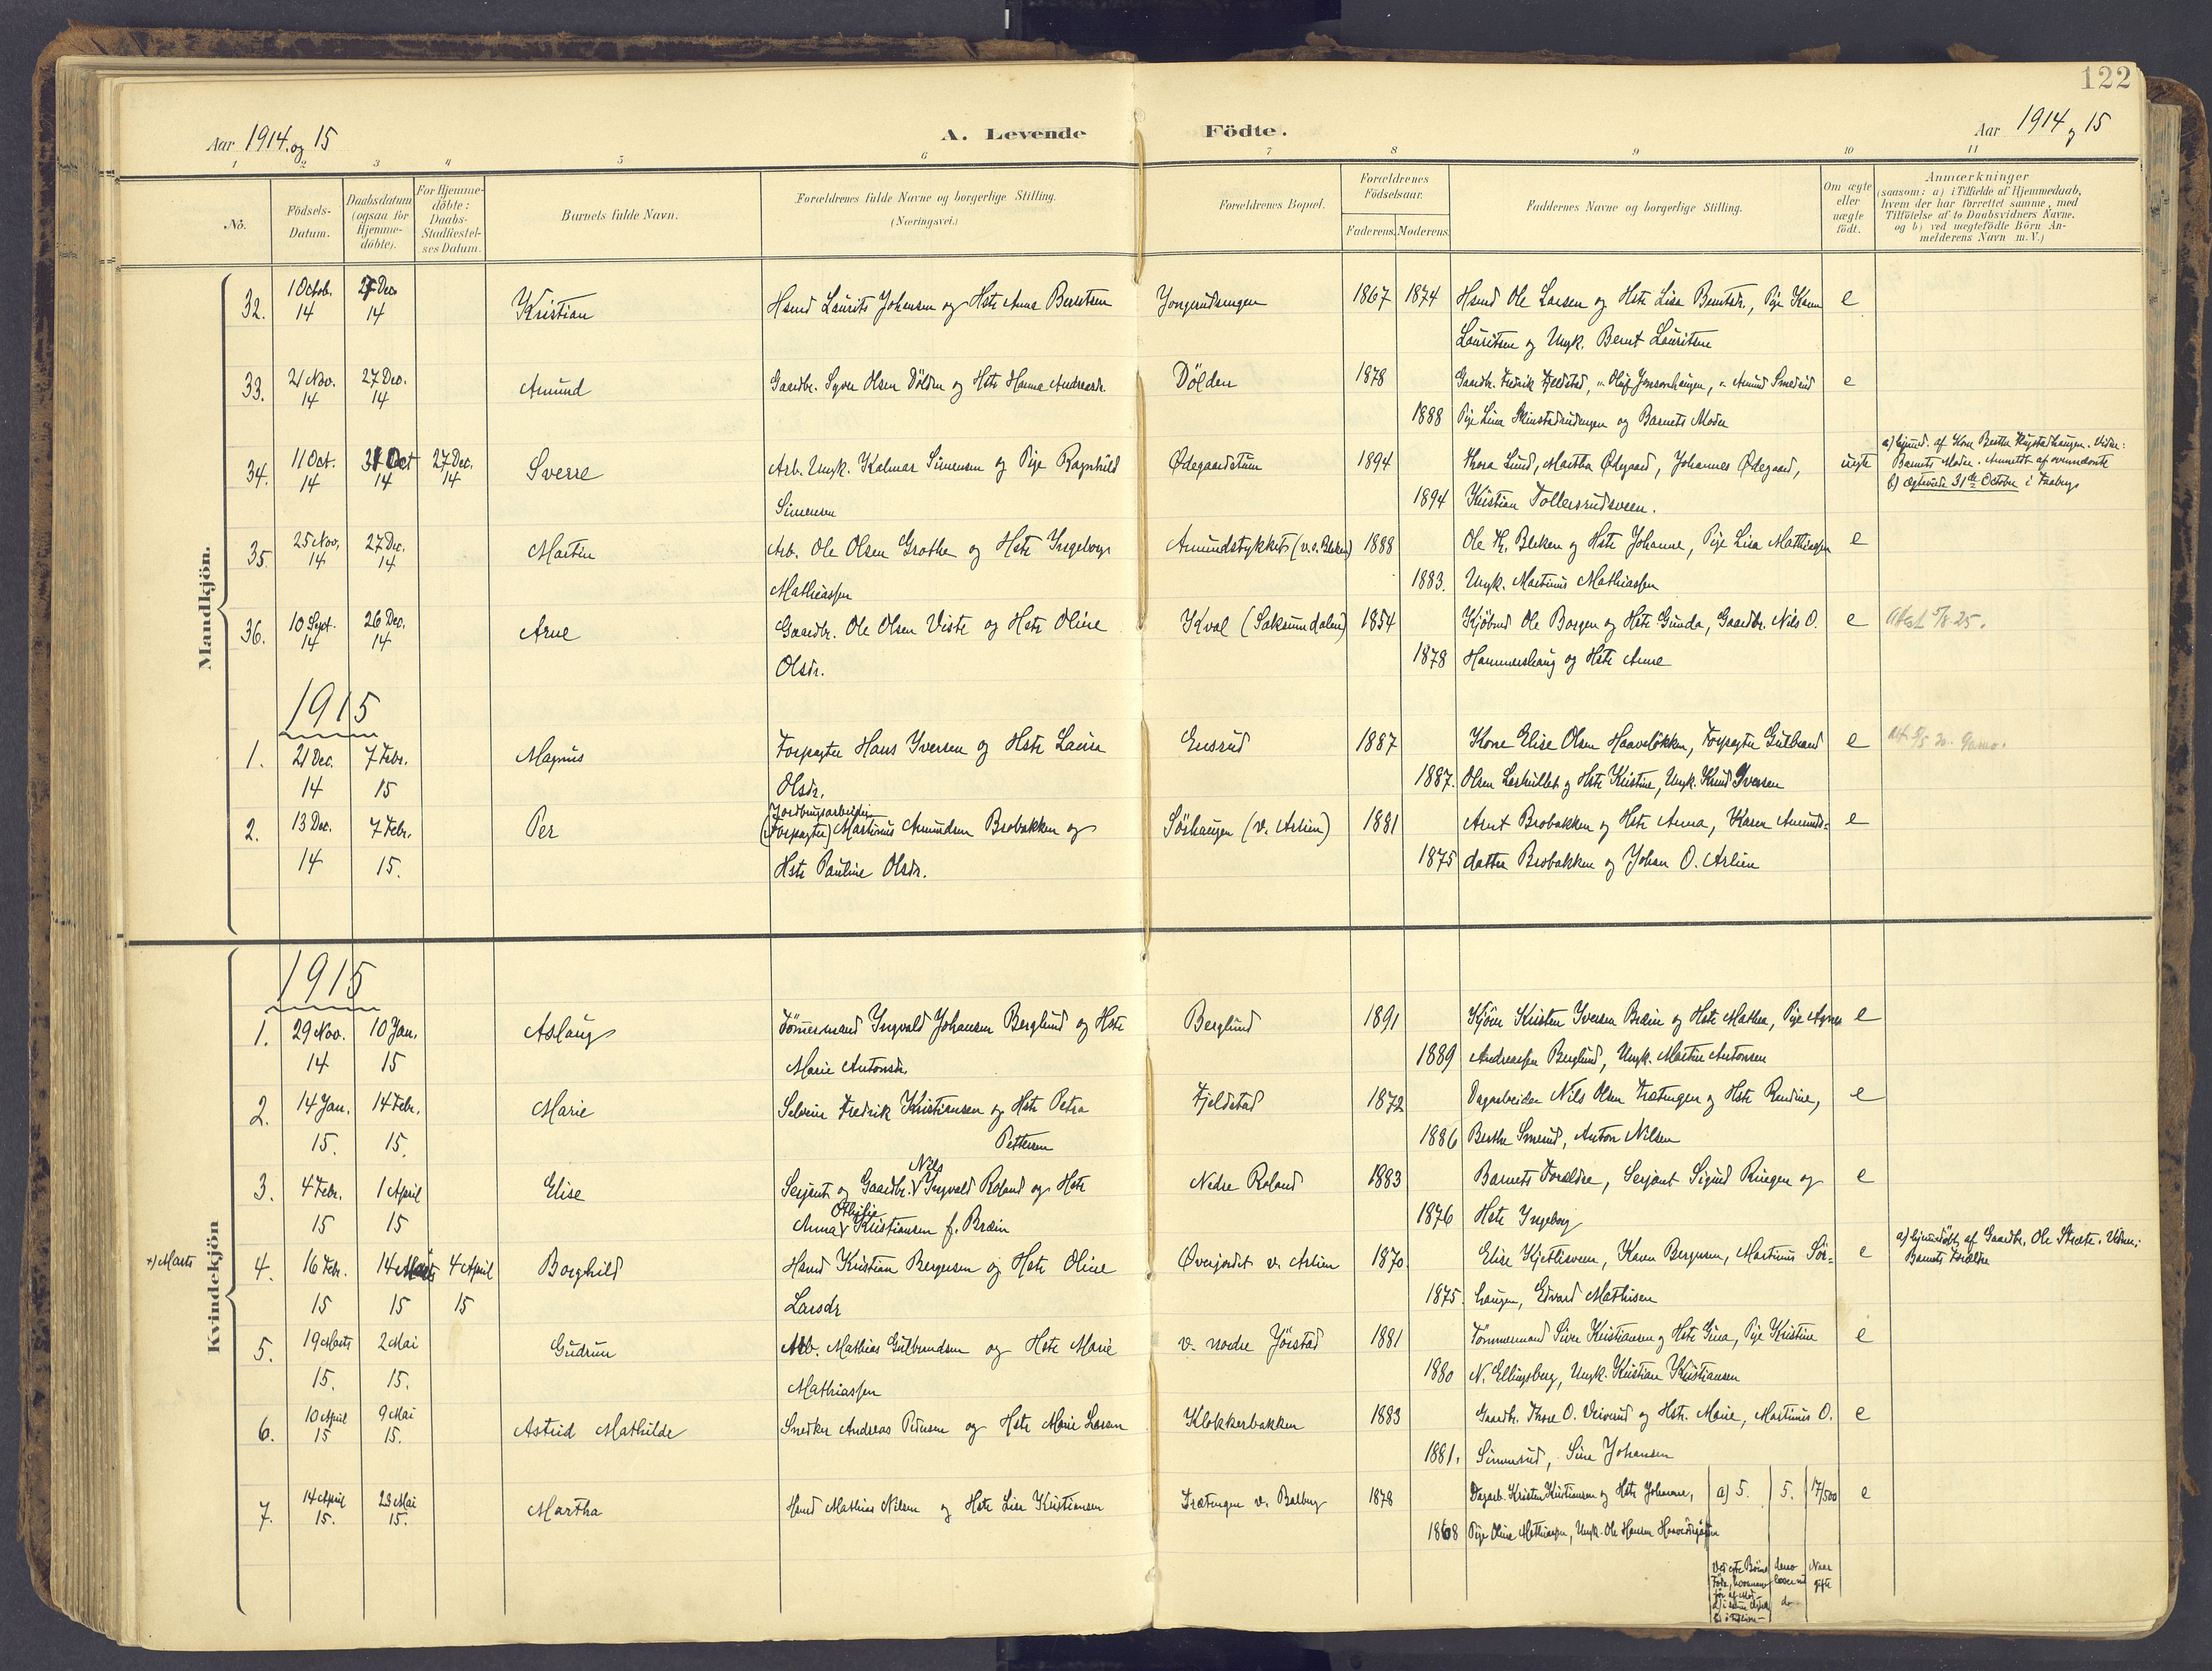 122
Aar 1914 og 15
A. Levende Födte.
Aar 1914 og 15
1 2 3 4 5 6 7 8 9 10 11
No.
Födsels-Datum.
Daabsdatum (ogsaa for Hjemme-döbte).
For Hjemme-döbte: Daabs-Stadfæstel-ses Datum.
Barnets fulde Navn.
Forældrenes fulde Navne og borgerlige Stilling. (Næringsvei.)
Forældrenes Bopæl.
Forældrenes Födselsaar.
Faderens. Moderens.
Faddernes Navne og borgerlige Stilling.
Om ægte eller uægte födt.
Anmærkninger (saasom: a) i Tilfælde af Hjemmedaab, hvem der har forrettet samme, med Tilföielse af to Daabsvidners Navne. og b) ved uægtefödte Börn Anmelderens Navn m. V.)
Mandkjön.
32. 1 Octob. 14 27 Dec 14 Kristian Hsmd Laurits Johansen og Hstr Anna Berntsen 1867 1874 Hsmd Ole Larsen og Hstr Lise Berntsdr., Pige Karen e
Lauritsen og Ungk. Bernt Lauritsen
33. 21 Nov. 14 27 Dec. 14 Amund Gaardbr. Syver Olsen Dölden og Hstr Hanna Andreasdr. Dölden 1878 Gaardbr. Fredrik Fjeldstad, " Oluf Jonsonhaugen, " Amund Smedrud e
1888 Pige Lina og Barnets Moder
34. 11 Oct. 14 31 Oct 14 27 Dec. 14 Sverre Arb. Ungk. Kalmar Simensen og Pige Ragnhild Ødegaardstuen 1894 Thora Lund, Martha Ødegaard, Johannes Ødegaard, uegte a) hjmd. af Kone Berthe . Vidne:
Simensen 1894 Kristian Tollersrudsveen. Barnets Moder. Anmeldt af ovennævnte
b) Ægteviede 31te October i Faaberg
35. 25 Nov. 14 27 Dec. 14 Martin Arb. Ole Olsen Grothe og Hstr Ingeborg Amundstykket (v. s. Bleken) 1888 Ole Th. Bleken og Hstr Johanne, Pige Lisa Mathiassen e
Mathiassen 1883. Ungk. Martinus Mathiassen
36. 10 Sept. 14 26 Dec. 14 Arne Gaardbr. Ole Olsen Viste og Hstr Oline Kval (Saksumdalen) 1854 Kjöbmd Ole Borgen og Hstr Gunda, Gaardbr. Nils O. e Attest 5/8 25.
Olsdr. 1878 Hammershaug og Hstr Anne
1915
1. 21 Dec. 14 7 Febr. 15 Magnus Forpagter Hans Iversen og Hstr Laura Ensrud 1887 Kone Elise Olsen Haavelökken, Forpagter Gulbrand e
Olsdr. 1887. Olsen og Hstr Kristine, Ungk. Knud Iversen
2. 13 Dec. 14 7 Febr. 15. Per Jordbrugsarbeider (Forpagter) Martinus Amundsen Brobakken og Sörhaugen (v. Arlien) 1881 Arnt Brobakken og Hstr Anna, Karen Amunds= e
Hstr Pauline Olsdr. 1875 datter Brobakken og Johan O. Arlien
Kvindekjön
1915
1. 29 Nov. 14 10 Jan. 15 Aslaug Tömmermand Ingvald Johansen Berglund og Hstr Berglund 1891 Kjörer Kristen Iversen Brein og Hstr Mathea, Pige Agnes e
Marie Antonsdr. 1889 Andreassen Berglund, Ungk. Martin Antonsen
2. 14 Jan. 15. 14 Febr. 15. Marie Selveier Fredrik Kristiansen og Hstr Petra Fjeldstad 1872 Dagarbeider Nils Olsen Trætengen og Hstr Rendine, e
Pettersen 1886 Berthe Smerud, Anton Nilsen
3. 4 Febr. 15 1 April 15 Elise Serjant og Gaardbr. Nils Ingvald Roland og Hstr Nedre Roland 1883 Barnets Forældre, Serjant Sigurd Ringen og e
Anna Othilie Kristiansen f. Bræin 1876 Hstr Ingeborg
x) Marts 4. 16 Febr. 15 14 Marts 15 4 April 15 Borghild Hsmd Kristian Bergersen og Hstr Oline Øverjordet v. Arlien 1870 Elise Kjetlisveen, Karen Bergersen, Martinus Sör= e a) hjemdöbt af Gaardbr. Ole . Vidner:
Larsdr 1875. haugen, Edvard Mathisen Barnets Forældre
5. 19 Marts 15. 2 Mai 15. Gudrun Arb. Mathias Gulbrandsen og Hstr Marie v. nordre Jörstad 1881 Tömmermand Siver Kristiansen og Hstr Gina, Pige Kristine e
Mathiassen 1880 N. Ellingsberg, Ungk. Kristian Kristiansen
6. 10 April 15 9 Mai 15. Astrid Mathilde Snedker Andreas Pedersen og Hstr Marie Larsen Klokkerbakken 1883 Gaardbr. Thore O. og Hstr. Marie, Martinus O. e
1881. Simenrud, Sina Johansen
7. 14 April 15. 23 Mai 15. Martha Hsmd Mathias Nilsen og Hstr Lise Kristiansen Trætengen v. Balberg 1878 Dagarb. Kristen Kristiansen og Hstr Johanne, a) 5. 5. 17/500 e
1868 Pige Oline Mathiassen, Ungk. Ole Hansen
Naar gifte